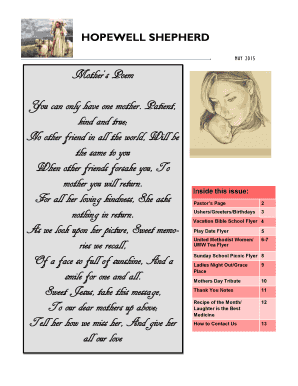 HOPEWELL SHEPHERD
MAY 2015
Mother's Poem
You can only have one mother. Patient,
kind and true;
No other friend in all the world, Will be
the same to you
When other friends forsake you, To
mother you will return.
For all her loving kindness, She asks
nothing in return.
As we look upon her picture, Sweet memo-
ries we recall.
Of a face so full of sunshine, And a
smile for one and all.
Sweet Jesus, take this message,
To our dear mothers up above;
Tell her how we miss her, And give her
all our love
Inside this issue:
Pastor's Page 2
Ushers/Greeters/Birthdays 3
Vacation Bible School Flyer 4
Play Date Flyer 5
United Methodist Women/ 6-7
UMW Tea Flyer
Sunday School Picnic Flyer 8
Ladies Night Out/Grace 9
Place
Mothers Day Tribute 10
Thank You Notes 11
Recipe of the Month/ 12
Laughter is the Best
Medicine
How to Contact Us 13